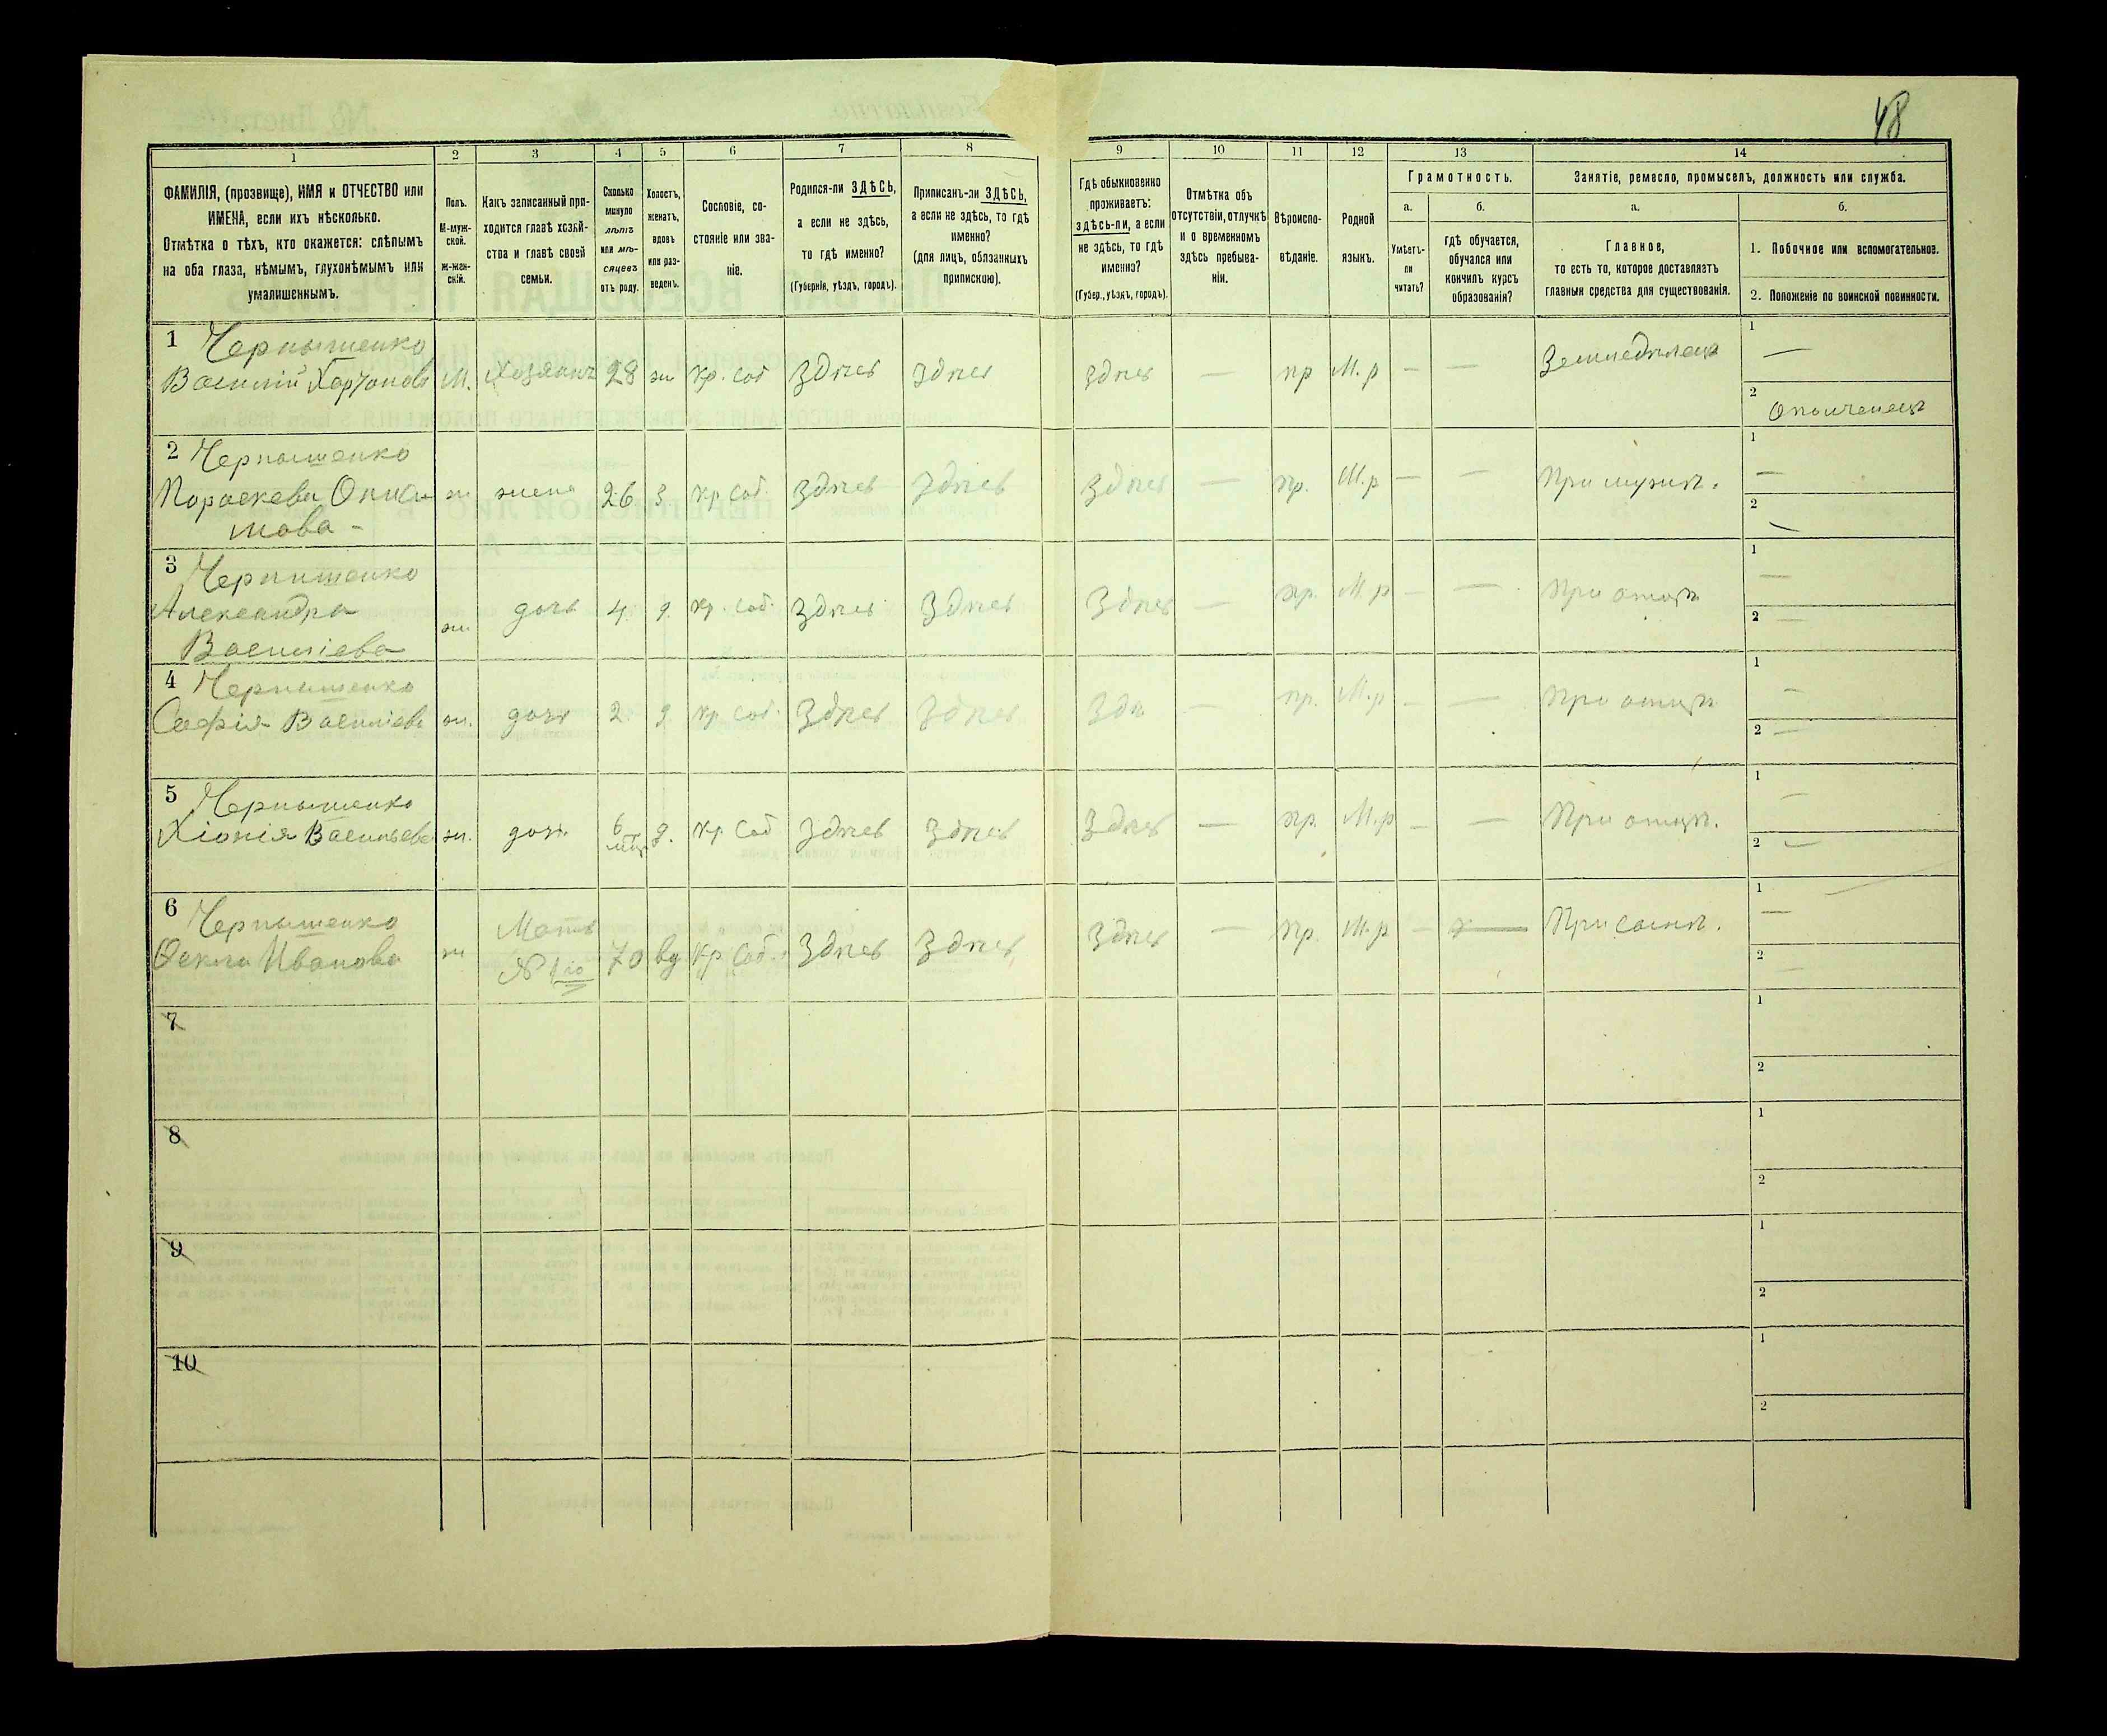 48
1 2 3 4 5 6 7 8 9 10 11 12 13 14
ФАМИЛІЯ, (прозвище), ИМЯ и ОТЧЕСТВО или
ИМЕНА, если ихъ нѣсколько.
Отмѣтка о тѣхъ, кто окажется: слѣпымъ
на оба глаза, нѣмымъ, глухонѣмымъ или
умалишеннымъ.
Полъ.
М-муж-
ской.
Ж-жен-
скій.
Какъ записанный при-
ходится главѣ хозяй-
ства и главѣ своей
семьи.
Сколько
минуло
лѣтъ
или мѣ-
сяцевъ
отъ роду.
Холостъ,
женатъ,
вдовъ
или раз-
веденъ.
Сословіе, со-
стояніе или зва-
ніе.
Родился-ли ЗДѢСЬ,
а если не здѣсь,
то гдѣ именно?
(Губернія, уѣздъ, городъ).
Приписанъ-ли ЗДѢСЬ,
а если не здѣсь, то гдѣ
именно?
(для лицъ, обязанныхъ
припискою).
Гдѣ обыкновенно
проживаетъ:
здѣсь-ли, а если
не здѣсь, то гдѣ
именно?
(Губер., уѣздъ, городъ).
Отмѣтка объ
отсутствіи, отлучкѣ
и о временномъ
здѣсь пребыва-
ніи.
Вѣроиспо-
вѣданіе.
Родной
языкъ.
Грамотность.
а.
Умѣетъ-
ли
читать?
б.
гдѣ обучается,
обучался или
кончилъ курсъ
образованія?
Занятіе, ремесло, промыселъ, должность или служба.
а.
Главное,
то есть то, которое доставляетъ
главныя средства для существованія.
б.
1. Побочное или вспомогательное.
2. Положеніе по воинской повинности.
1 Чернышенко
Василій Харитоновъ М. Хозяинъ 28 ж кр. соб здѣсь здѣсь здѣсь — пр М.р — — Земледѣлецъ 1 —
2 Ополченецъ
2 Чернышенко
ПараскеваОниси ж жена 26 з кр соб здѣсь здѣсь здѣсь — пр. М.р — — При мужѣ. 1 —
мова - 2 —
3 Чернышенко
Александра
Василіева ж. дочь 4. д. кр. соб. здѣсь здѣсь здѣсь — пр. М.р — — При отцѣ 1 —
2 —
4 Чернышенко
Софія Василіева ж. дочь 2. д. кр. соб. здѣсь здѣсь здѣ — пр. М.р — — При отцѣ 1 —
2 —
5 Чернышенко
Хіонія Васильева ж. дочь 6 мѣц д. кр соб здѣсь здѣсь здѣсь — пр. М.р — — При отцѣ. 1 —
2 —
6 Чернышенко
Ѳекла Иванова ж Мать
№ 1го 70 вд кр соб. здѣсь здѣсь здѣсь — пр. М.р — — При сынѣ. 1 —
2 —
7 1
2
8 1
2
9 1
2
10 1
2